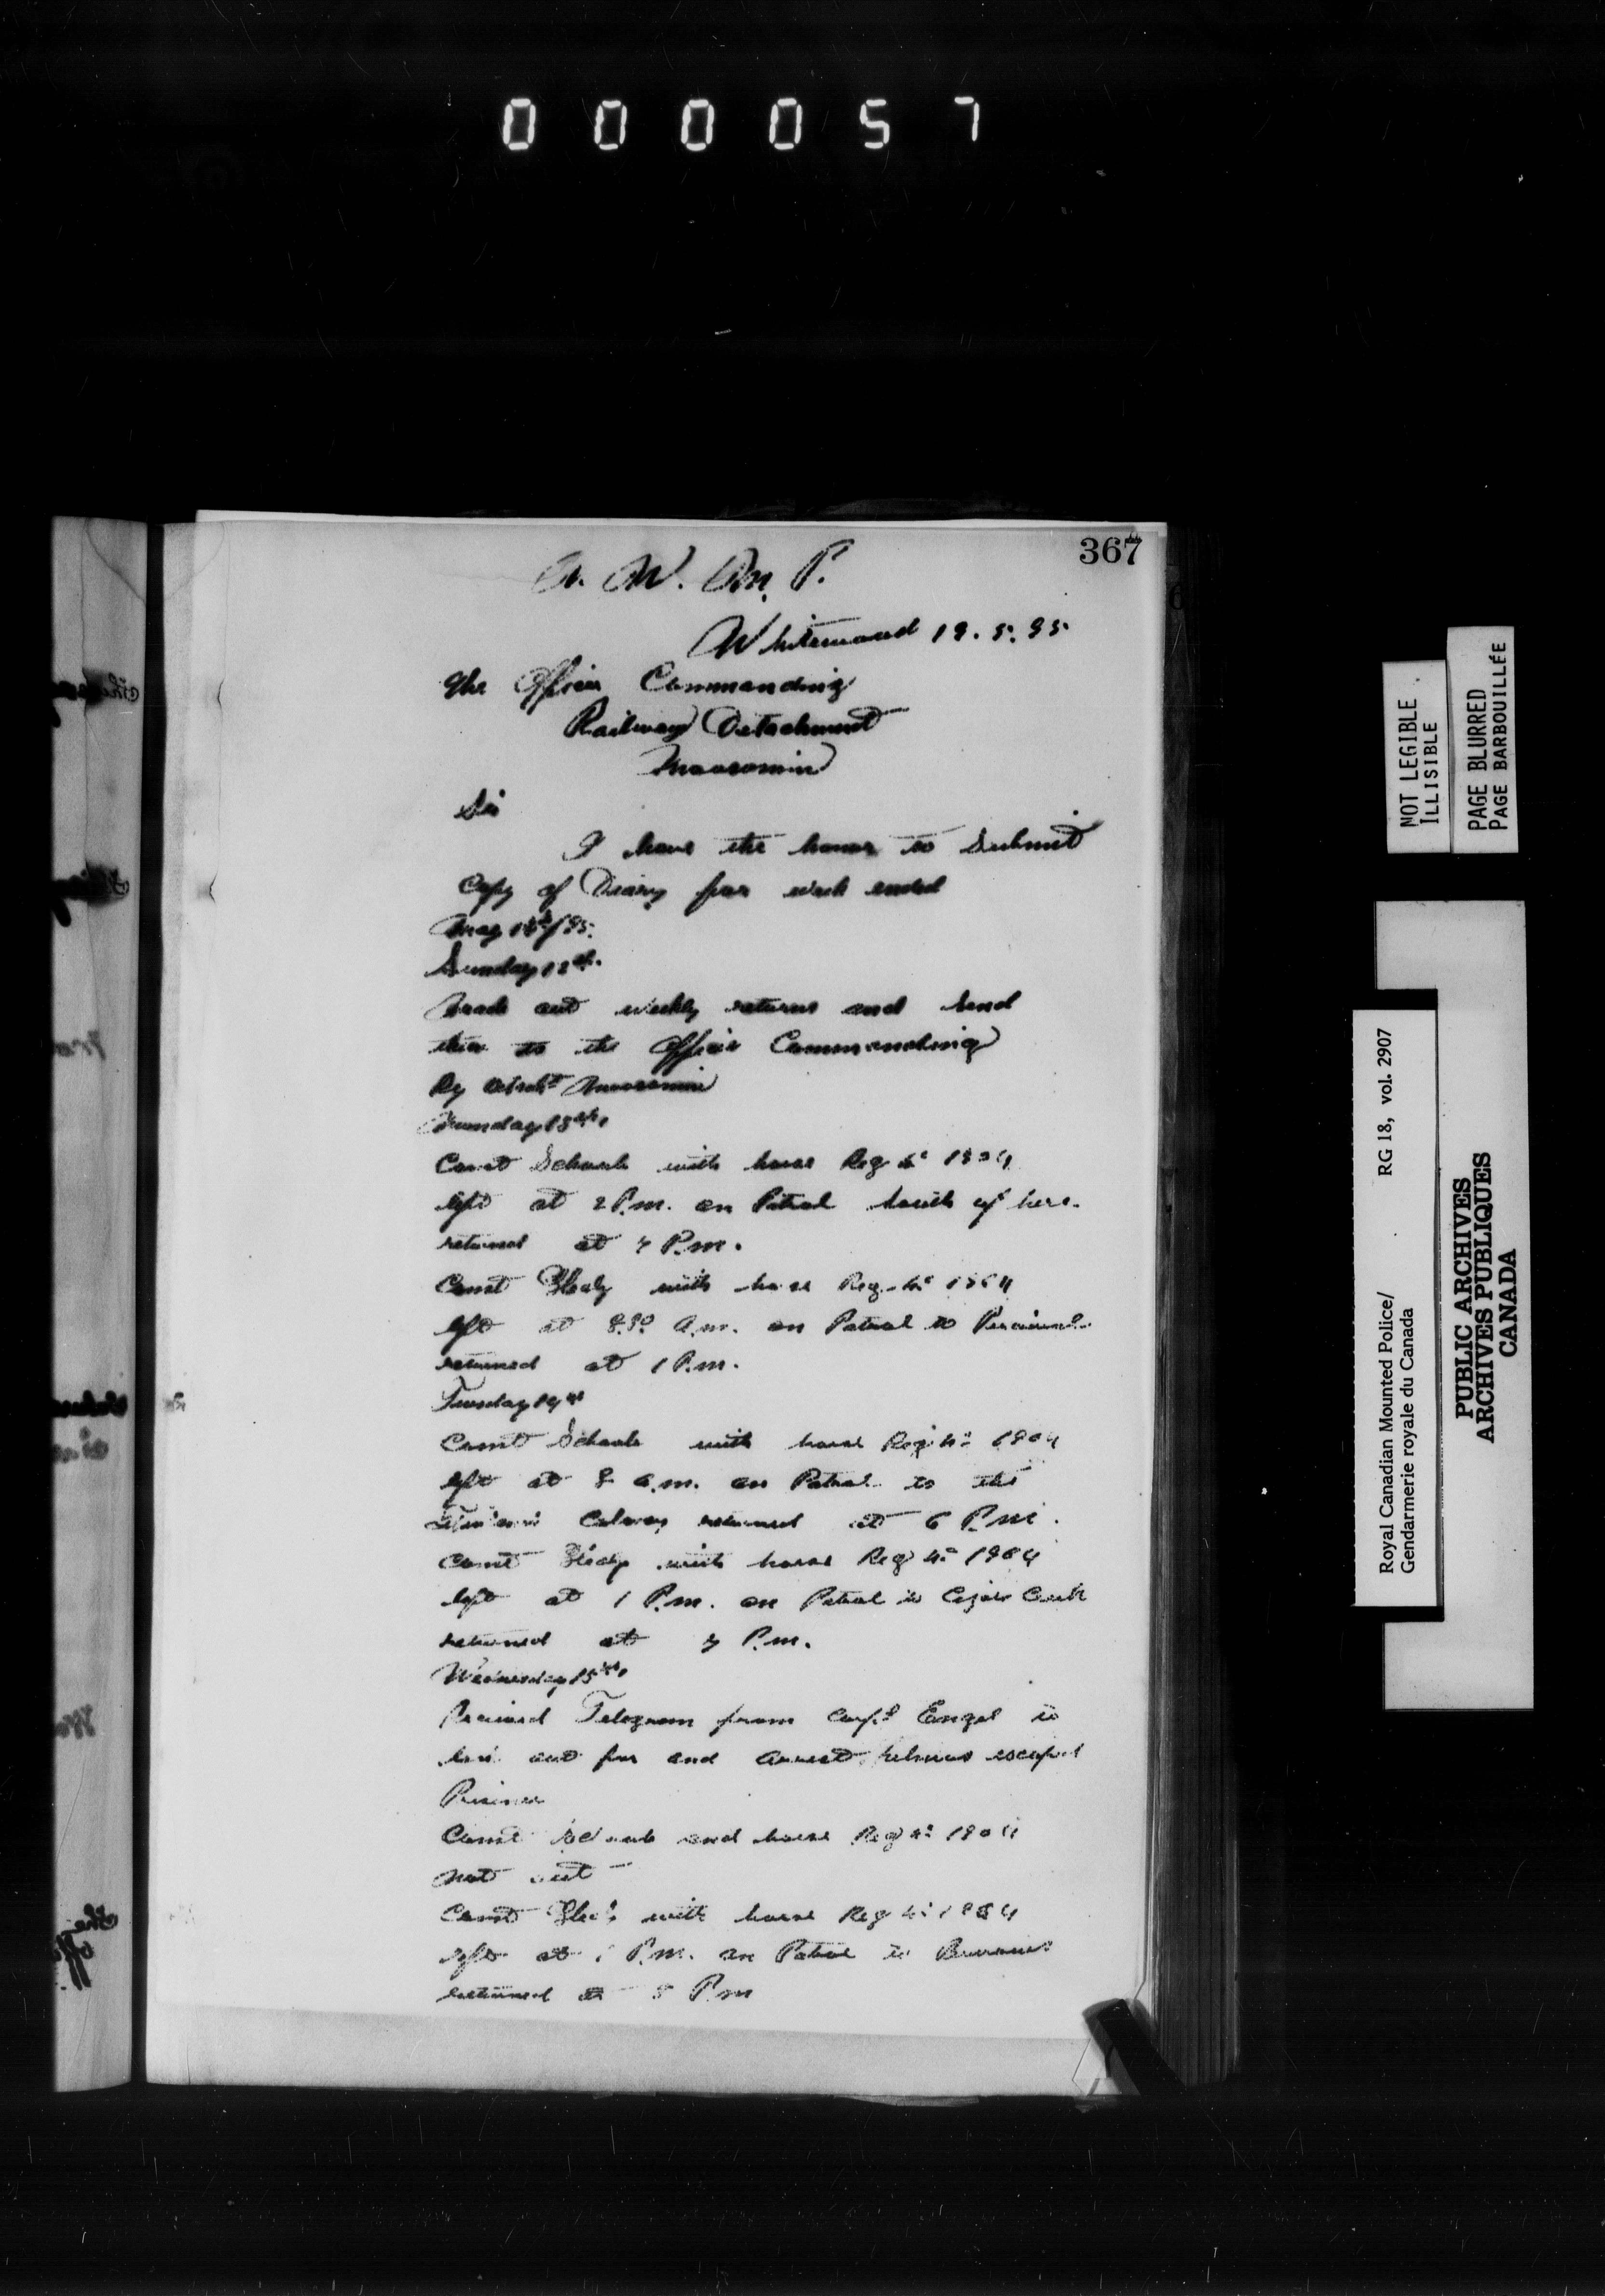 000057
367
N. W. M. P.
Whitewood 19.5.95
The Officer Commanding
Railway Detachment
Moosomin
Sir
I have the honor to Submit
Copy of Diary for week ended
May 18th/95.
Sunday 12th.
Made out weekly returns and Send
them to the Officer Commanding
Ry Detcht Moosomin
Monday 13th.
Const Schaub with horse Reg No 1904
left at 2 P.m. on Patrol South of here.
returned at 7 P.m.
Const with horse Reg. No 1964
left at 8.30 a.m. on Patrol to Percival
returned at 1 P.m.
Tuesday 14th
Const Schaub with horse Reg No 1904
left at 8 a.m. on Patrol to the
Colony returned at 6 P.m.
Const with horse Reg No 1964
left at 1 P.m. on Patrol to Creek
returned at 7 P.m.
Wednesday 15th.
Received Telegram from Corpl to
out for and arrest escaped
Prisoner
Const Schaub and horse Reg No 1904
not out
Const with horse Reg No 1964
left at 1 P.m. on Patrol to Burrows
returned at 5 P.m
NOT LEGIBLE
ILLISIBLE
PAGE BLURRED
PAGE BARBOUILLÉE
Royal Canadian Mounted Police/
Gendarmerie royale du Canada
RG 18, vol. 2907
PUBLIC ARCHIVES
ARCHIVES PUBLIQUES
CANADA